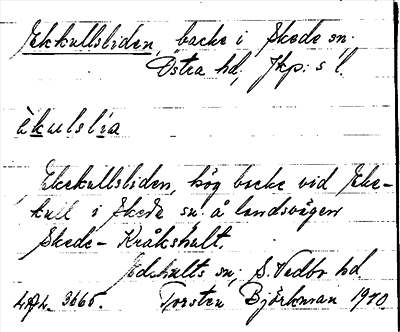 Ekkullsliden, backe i Skede sn.
Östra hd, Jkp:s l.
èkulslia
Ekekullsliden, hög backe vid Eke-
kull i Skede sn. å landsvägen
Skede - Kråkshult.
Edshults sn; S. Vedbo hd
4240. 3666. Torsten Björkman 1910.